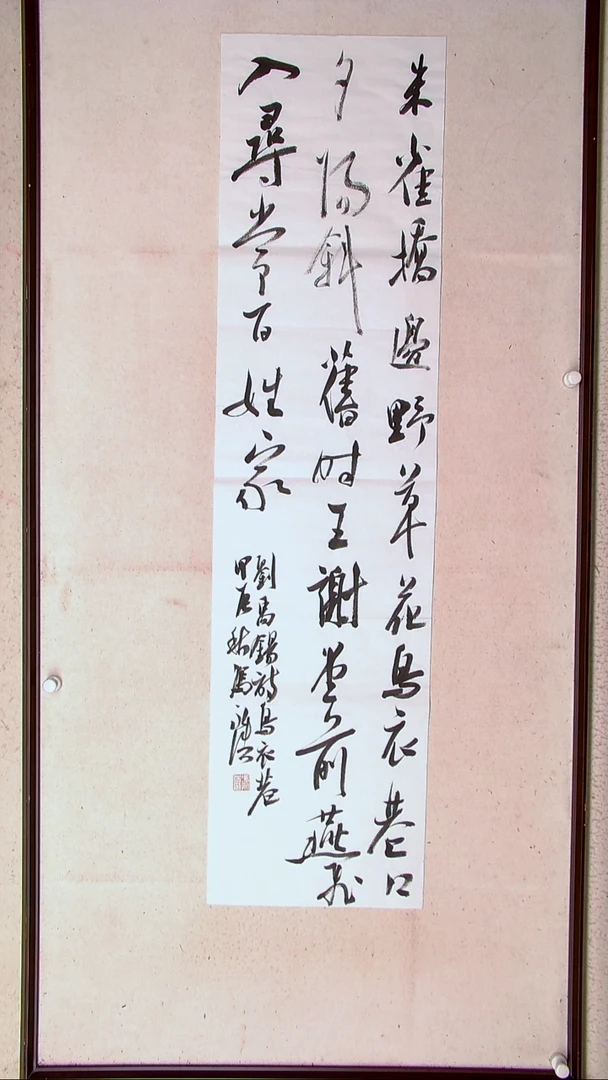 朱雀橋邊野草花烏衣巷口
夕陽斜舊时王謝堂前燕飛
入尋常百姓家
劉禹錫詩烏衣巷
甲辰秋